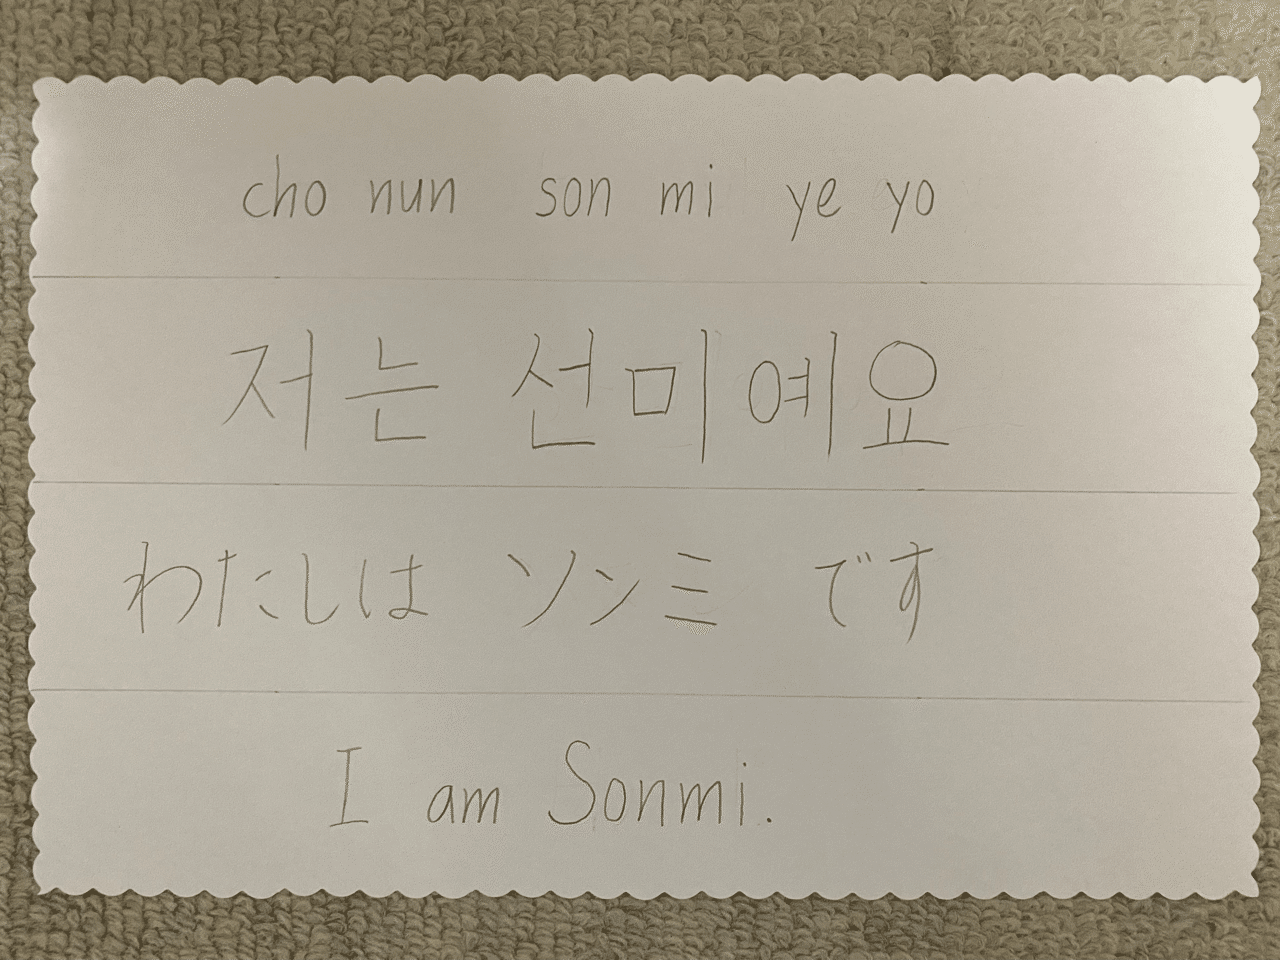 cho nun son mi ye yo
저는 선미예요
わたしは ソンミ です
I am Sonmi.